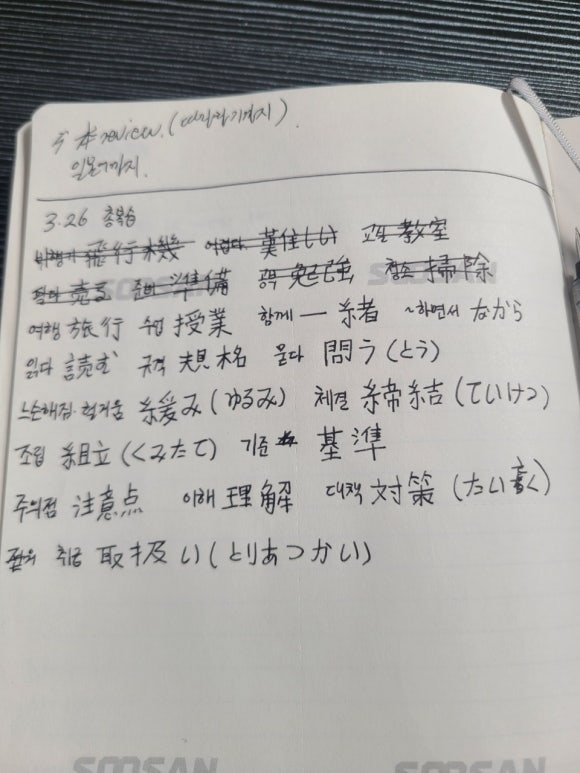 本 review. (까지)
일본어까지.
3.26 총복습
비행기 飛行機 어렵다 難しい 교실 教室
팔다 売る 준비 準備 공부 勉強 청소 掃除
여행 旅行 수업 授業 함께 一緒 ~하면서 ながら
읽다 読む 규격 規格 묻다 問う (とう)
느슨해짐·헐거움 緩み (ゆるみ) 체결 締結 (ていけつ)
조립 組立 (くみたて) 기준 基準
주의점 注意点 이해 理解 대책 対策 (たいさく)
취급 取扱い (とりあつかい)
SOOSAN
SOOSAN